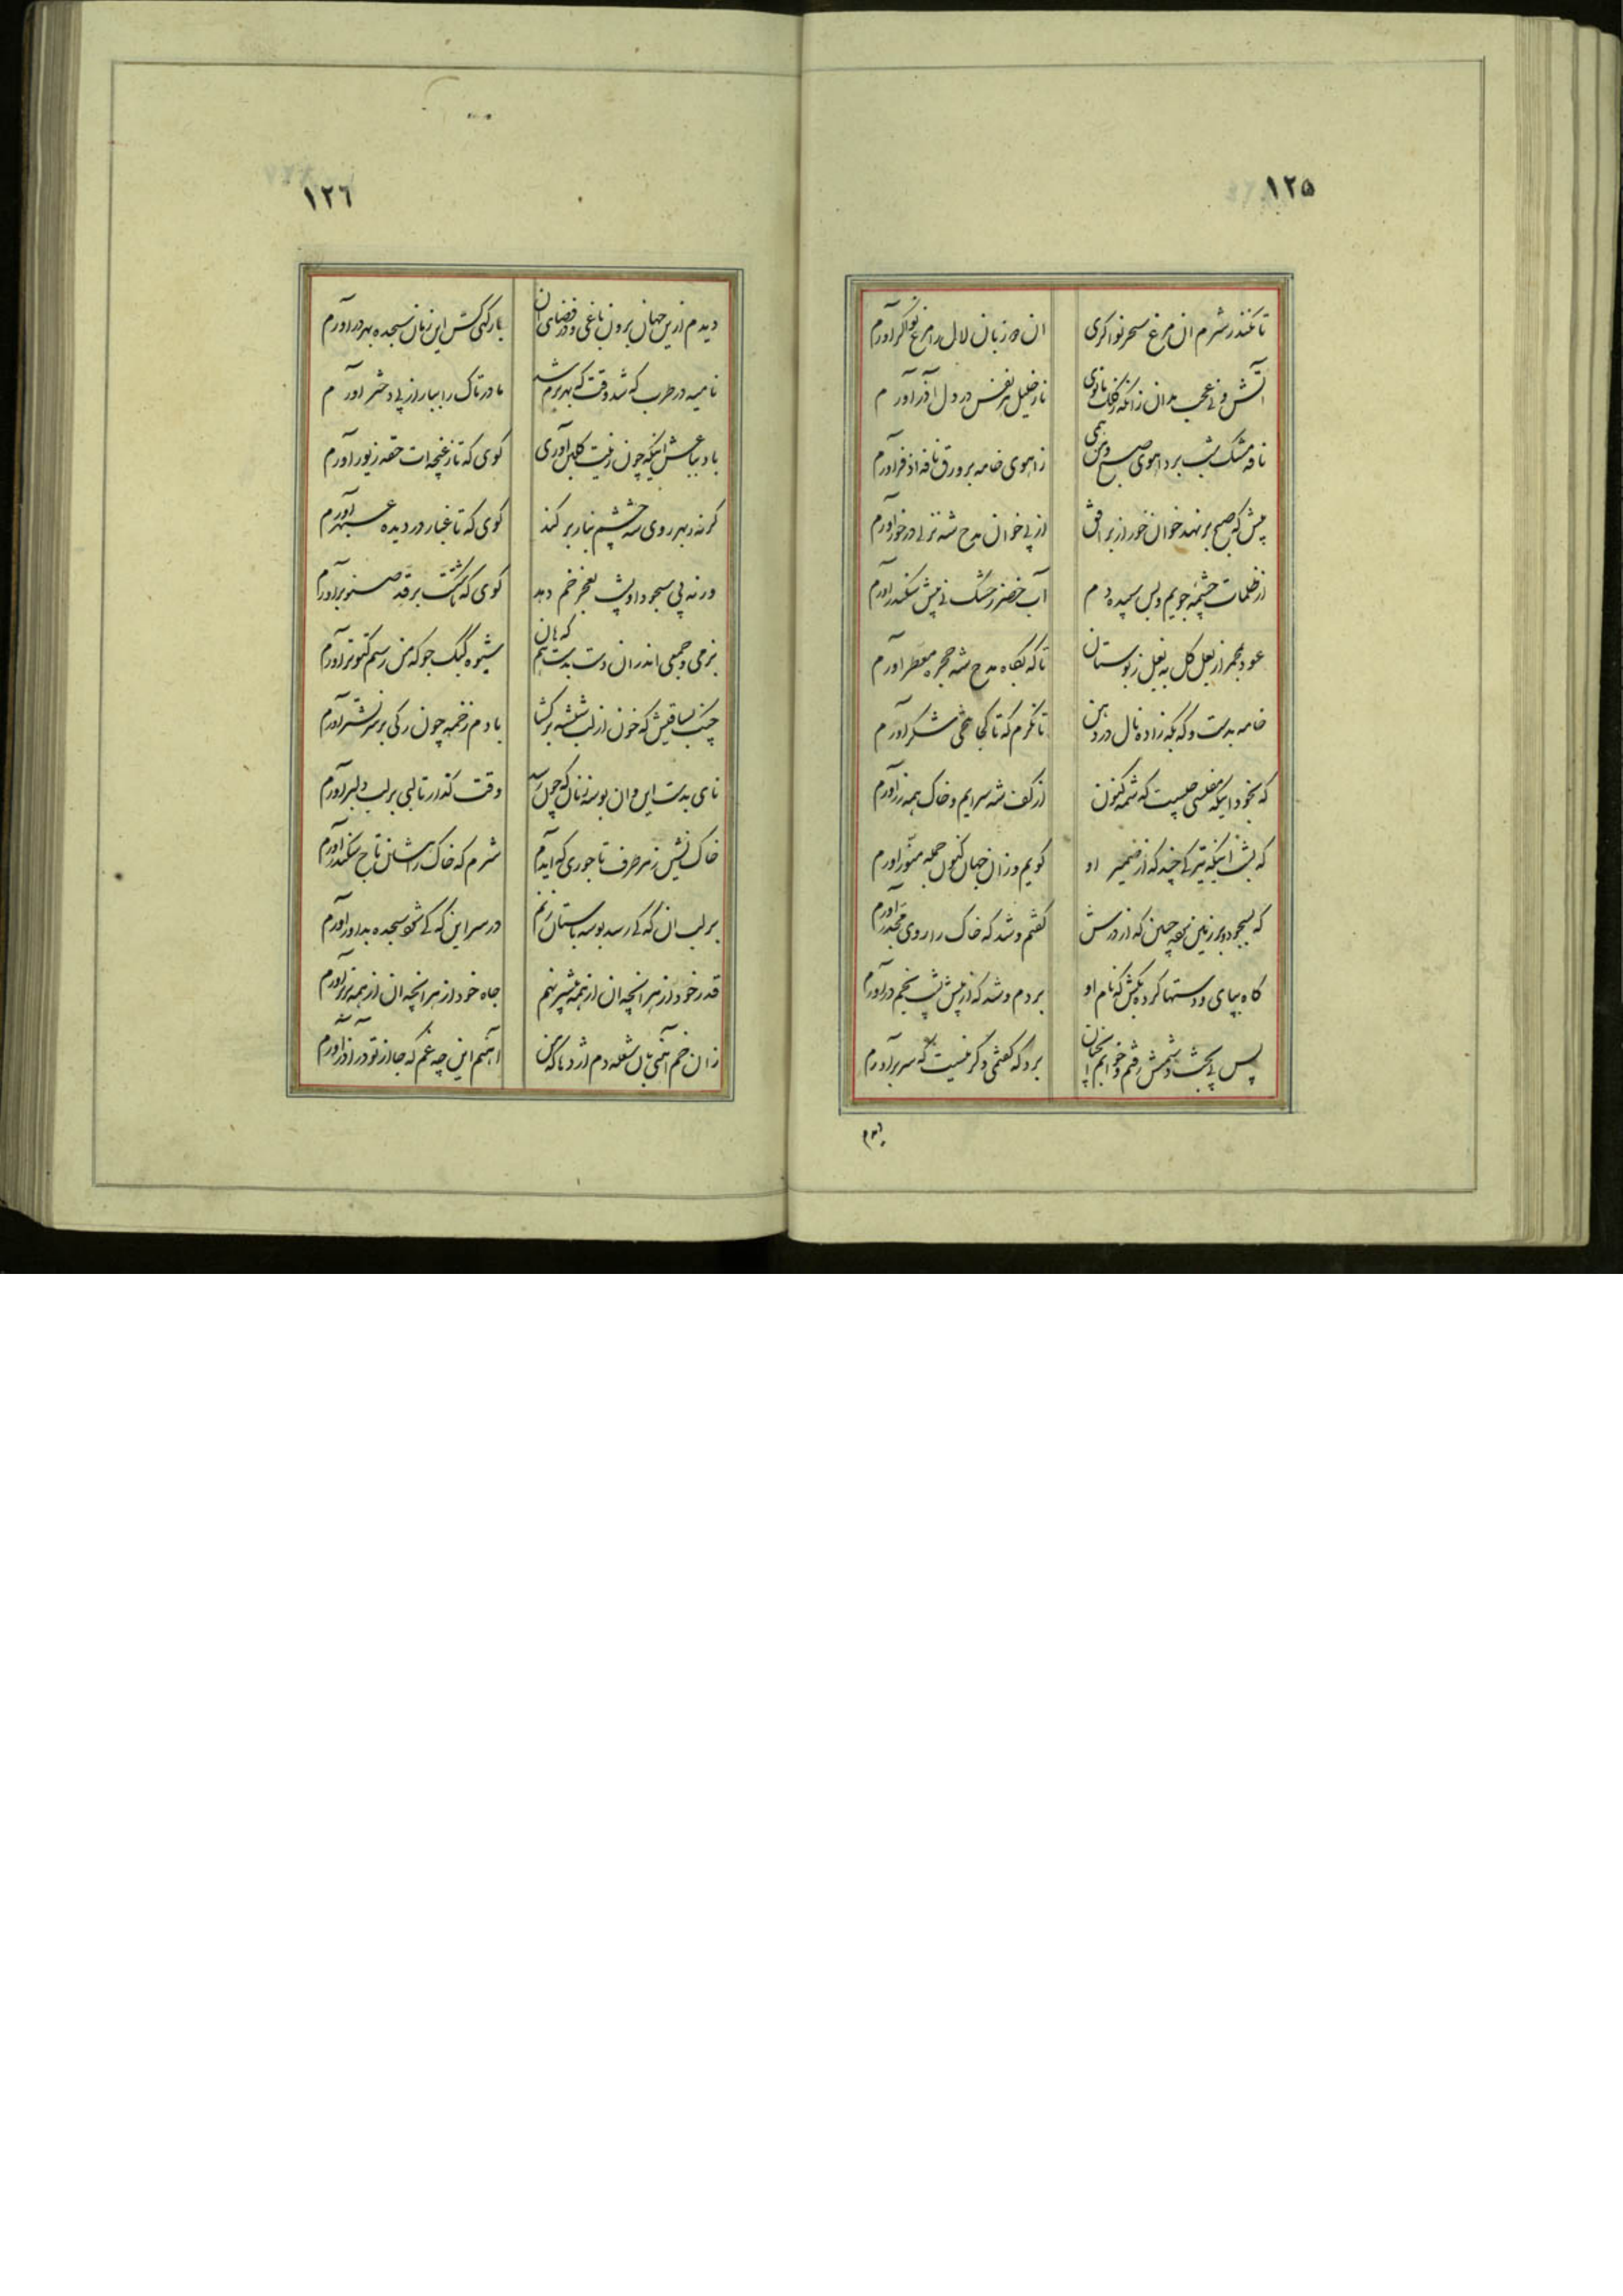 ۱۲۵
تا نکند ز شرم آن مرغ سحر نواگری
این ره زبان لال را مرغ نواگر آورم
آتش و نی عجب بدان زانکه ز کلک مانوی
نار خلیل هر نفس در دل آذر آورم
نافه مشک شب برد آهوی صبح و من همی
ز آهوی خامه بر ورق نافه اذفر آورم
پیش که صبح بر نهد خوان خور از بر افق
از پی خوان مدح شه نزلی در خور آورم
از ظلمات چشمه جویم و پس سپیده دم
آب خضر ز خشک نی پیش سکندر آورم
عود و مجمر از بغل گل به بغل ز بوستان
تا که بگاه مدح شه حجره معطر آورم
خامه بدست و که بگه زاده نال در دهن
تا نگرم که تا کجا طعمی شکر آورم
که بخود اینکه مفلسی چیست که شمه کنون
از کف شه سرایم و خاک همه زر آورم
که بشب اینکه تیرگی چند که از ضمیر او
گویم و زان جهان کنون جمله منور آورم
که بسجود و بر زمین بوسه چین که از درش
گفتم و شد که خاک را روی مجدر آورم
گاه بپای و دستها کرده بکش که نام او
بردم و شد که از پیش پشت بخم در آورم
پس پی بحث و شمش رفتم و خوابم آنچنان
برد که گفتمی دگر نیست که سر بر آورم
دیدم
۱۲۶
دیدم ازین جهان برون باغی و در فضای آن
بارگهی کش این زمان سجده بهر در آورم
نامیه در طرب که شد وقت که بهر بزم شه
مادر تاک را ببار از پی دختر آورم
باد بباغش اینکه چون زینت گلبن آوری
گوی که تا ز غنچه‌ات حقه زیور آورم
گر نه بهر روی شه چشم نیاز بر کند
گوی که تا غبار در دیده عبهر آورم
ور نه پی سجود او پشت بعجز خم دهد
گوی که تا شکست بر قد صنوبر آورم
بزمی و جمعی اندران دست بدست هم که هان
شیوه کبک جو که من رسم کبوتر آورم
چنگ بساقیش که خون از لب شیشه برگشا
بادم زخمه چون رگی بر سر نشتر آورم
نای بدست این و آن بوسه زنان که چون رسد
وقت گذار تا لبی بر لب دلبر آورم
خاک نشین ز هر طرف تاجوری که آیدم
شرم که خاک راهشان تاج سکندر آورم
بر لب آن که کی رسد بوسه باستان زنم
در سر این که کی شود سجده بداور آورم
قدر خود از هر آنچه آن از همه بیشتر نهم
جاه خود از هر آنچه آن از همه برتر آورم
زان خم آهنی بال شعله دم اژدها که من
آهنم این چه غم که جا ز تو در آذر آورم